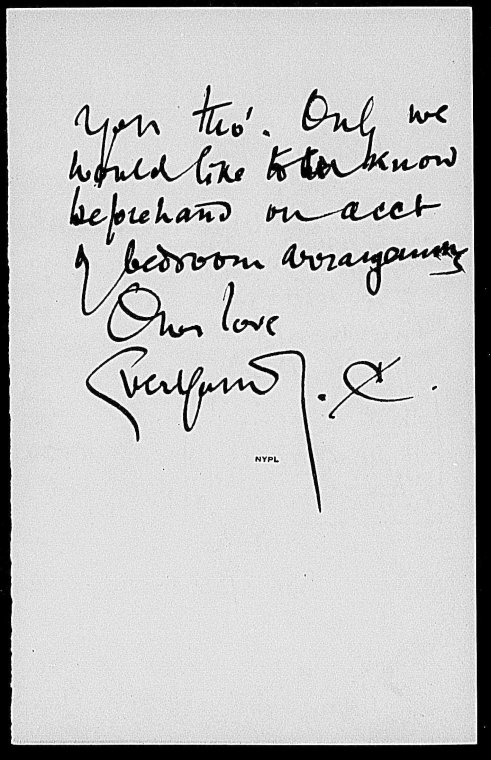 you tho'. Only we
would like to know
beforehand on acct
of bedroom arrangements
Our love
Ever yours J. C.
NYPL